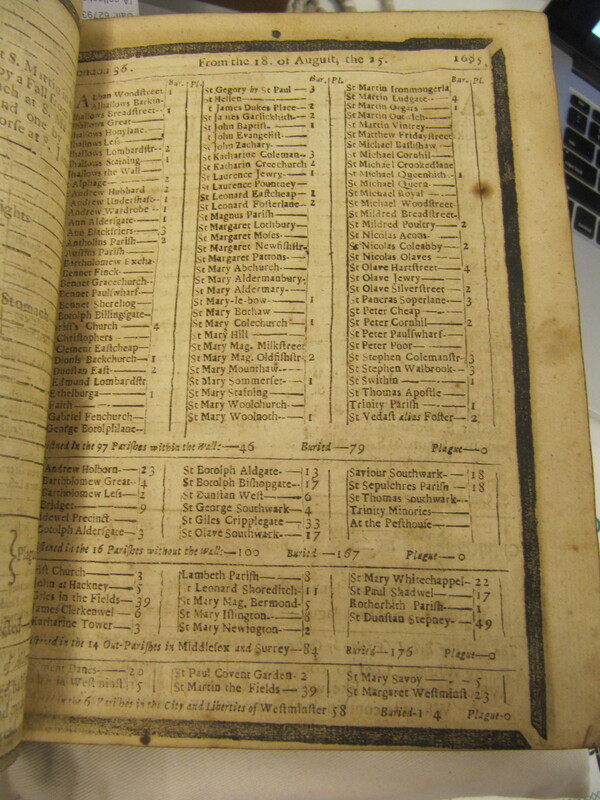 From the 18. of August, the 25. 1685,
Bar. Pl.
Woodstreet
Alhallows Barkin-
Breadstreet- 1
Great-
Honylane-
Less- 1
Lombardstr-- 2
Staining- 1
the Wall-
Alphage- 2
Andrew Hubbard 2
Andrew Undershaft- 1
Andrew Wardrobe -- 1
Ann Aldersgate-
Ann Blackfriers- 3
Antholins Parish- 2
Austins Parish-
Bartholomew Excha-
Bennet Finck-
Bennet Gracechurch--
Bennet Paulswharf-
Bennet Sherehog-
Botolph Billingsgate-
Christ's Church- 4
Christophers-
Clement Eastcheap-
Dionis Backchurch- 1
Dunstan East- 2
Edmund Lombardstr
Ethelburga- 1
Faith-
Gabriel Fenchurch-
George Botolphlane-
Bar. Pl.
St Gegory by St Paul- 3
St Hellen-
St James Dukes Place- 2
St James Garlickhith- 2
St John Baptist- 1
St John Evangelist-
St John Zachary-
St Katharine Coleman- 3
St Katharin Creechurch 2
St Laurence Jewry- 1
St Laurence Pountney-
St Leonard Eastcheap- 1
St Leonard Fosterlane- 2
St Magnus Parish-
St Margaret Lothbury-
St Margaret Moses-
St Margaret Newfishstr-
St Margaret Pattons-
St Mary Abchurch-
St Mary Aldermanbury-
St Mary Aldermary-
St Mary-le-bow- 1
St Mary Bothaw-
St Mary Colechurch- 1
St Mary Hill-
St Mary Mag. Milkstreet
St Mary Mag. Oldfishstr- 2
St Mary Mounthaw-
St Mary Sommerset- 1
St Mary Staining-
St Mary Woolchurch-
St Mary Woolnoth- 1
Bar. Pl.
St Martin Ironmongerla
St Martin Ludgate- 4
St Martin Orgars- 1
St Martin Outwich-
St Martin Vintrey-
St Matthew Fridaystreet-
St Michael Bassishaw-
St Michael Cornhil-
St Michael Crookedlane
St Michael Queenhith- 1
St Michael Quern-
St Michael Royal-
St Michael Woodstreet-
St Mildred Breadstreet-
St Mildred Poultry- 2
St Nicolas Acons-
St Nicolas Coleabby- 2
St Nicolas Olaves-
St Olave Hartstreet- 4
St Olave Jewry-
St Olave Silverstreet- 2
St Pancras Soperlane- 3
St Peter Cheap-
St Peter Cornhil- 2
St Peter Paulswharf-
St Peter Poor-
St Stephen Colemanstr- 3
St Stephen Walbrook- 3
St Swithin- 1
St Thomas Apostle-
Trinity Parish- 1
St Vedast alias Foster- 2
in the 97 Parishes within the wall:-46 Buried-79 Plague-0
Andrew Holborn- 23
Bartholomew Great- 4
Bartholomew Less- 2
Bridget- 9
Bridewel Precinct-
Botolph Aldersgate- 3
St Botolph Aldgate- 13
St Botolph Bishopgate- 17
St Dunstan West- 6
St George Southwark- 4
St Giles Cripplegate- 33
St Olave Southwark- 17
Saviour Southwark- 18
St Sepulchres Parish- 18
St Thomas Southwark-
Trinity Minories-
At the Pesthouse-
in the 16 Parishes without the Wall:-100 Buried-167 Plague-0
Christ Church- 3
John at Hackney- 5
Giles in the Fields- 39
James Clerkenwel- 6
Katharine Tower- 3
Lambeth Parish- 8
St Leonard Shoreditch- 11
St Mary Mag. Bermond- 5
St Mary Islington- 8
St Mary Newington- 2
St Mary Whitechappel- 22
St Paul Shadwel- 17
Rotherhith Parish- 1
St Dunstan Stepney- 49
in the 14 Out-Parishes in Middlesex and Surrey-84 Buried-176 Plague-0
Danes-
in Westminst 5
St Paul Covent Garden- 2
St Martin the Fields- 39
St Mary Savoy- 5
St Margaret Westminst 23
the 6 Parishes in the City and Liberties of Westminster 58 Buried- Plague-0